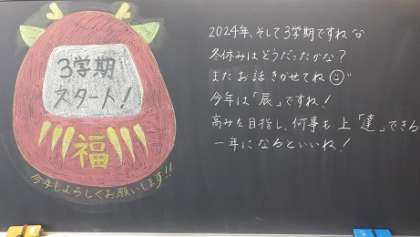 3学期
スタート!
福
今年もよろしくお願いします!!
2024年、そして3学期ですね
冬休みはどうだったかな?
またお話きかせてね
今年は「辰」ですね!
高みを目指し、何事も上「達」できる
一年になるといいね!